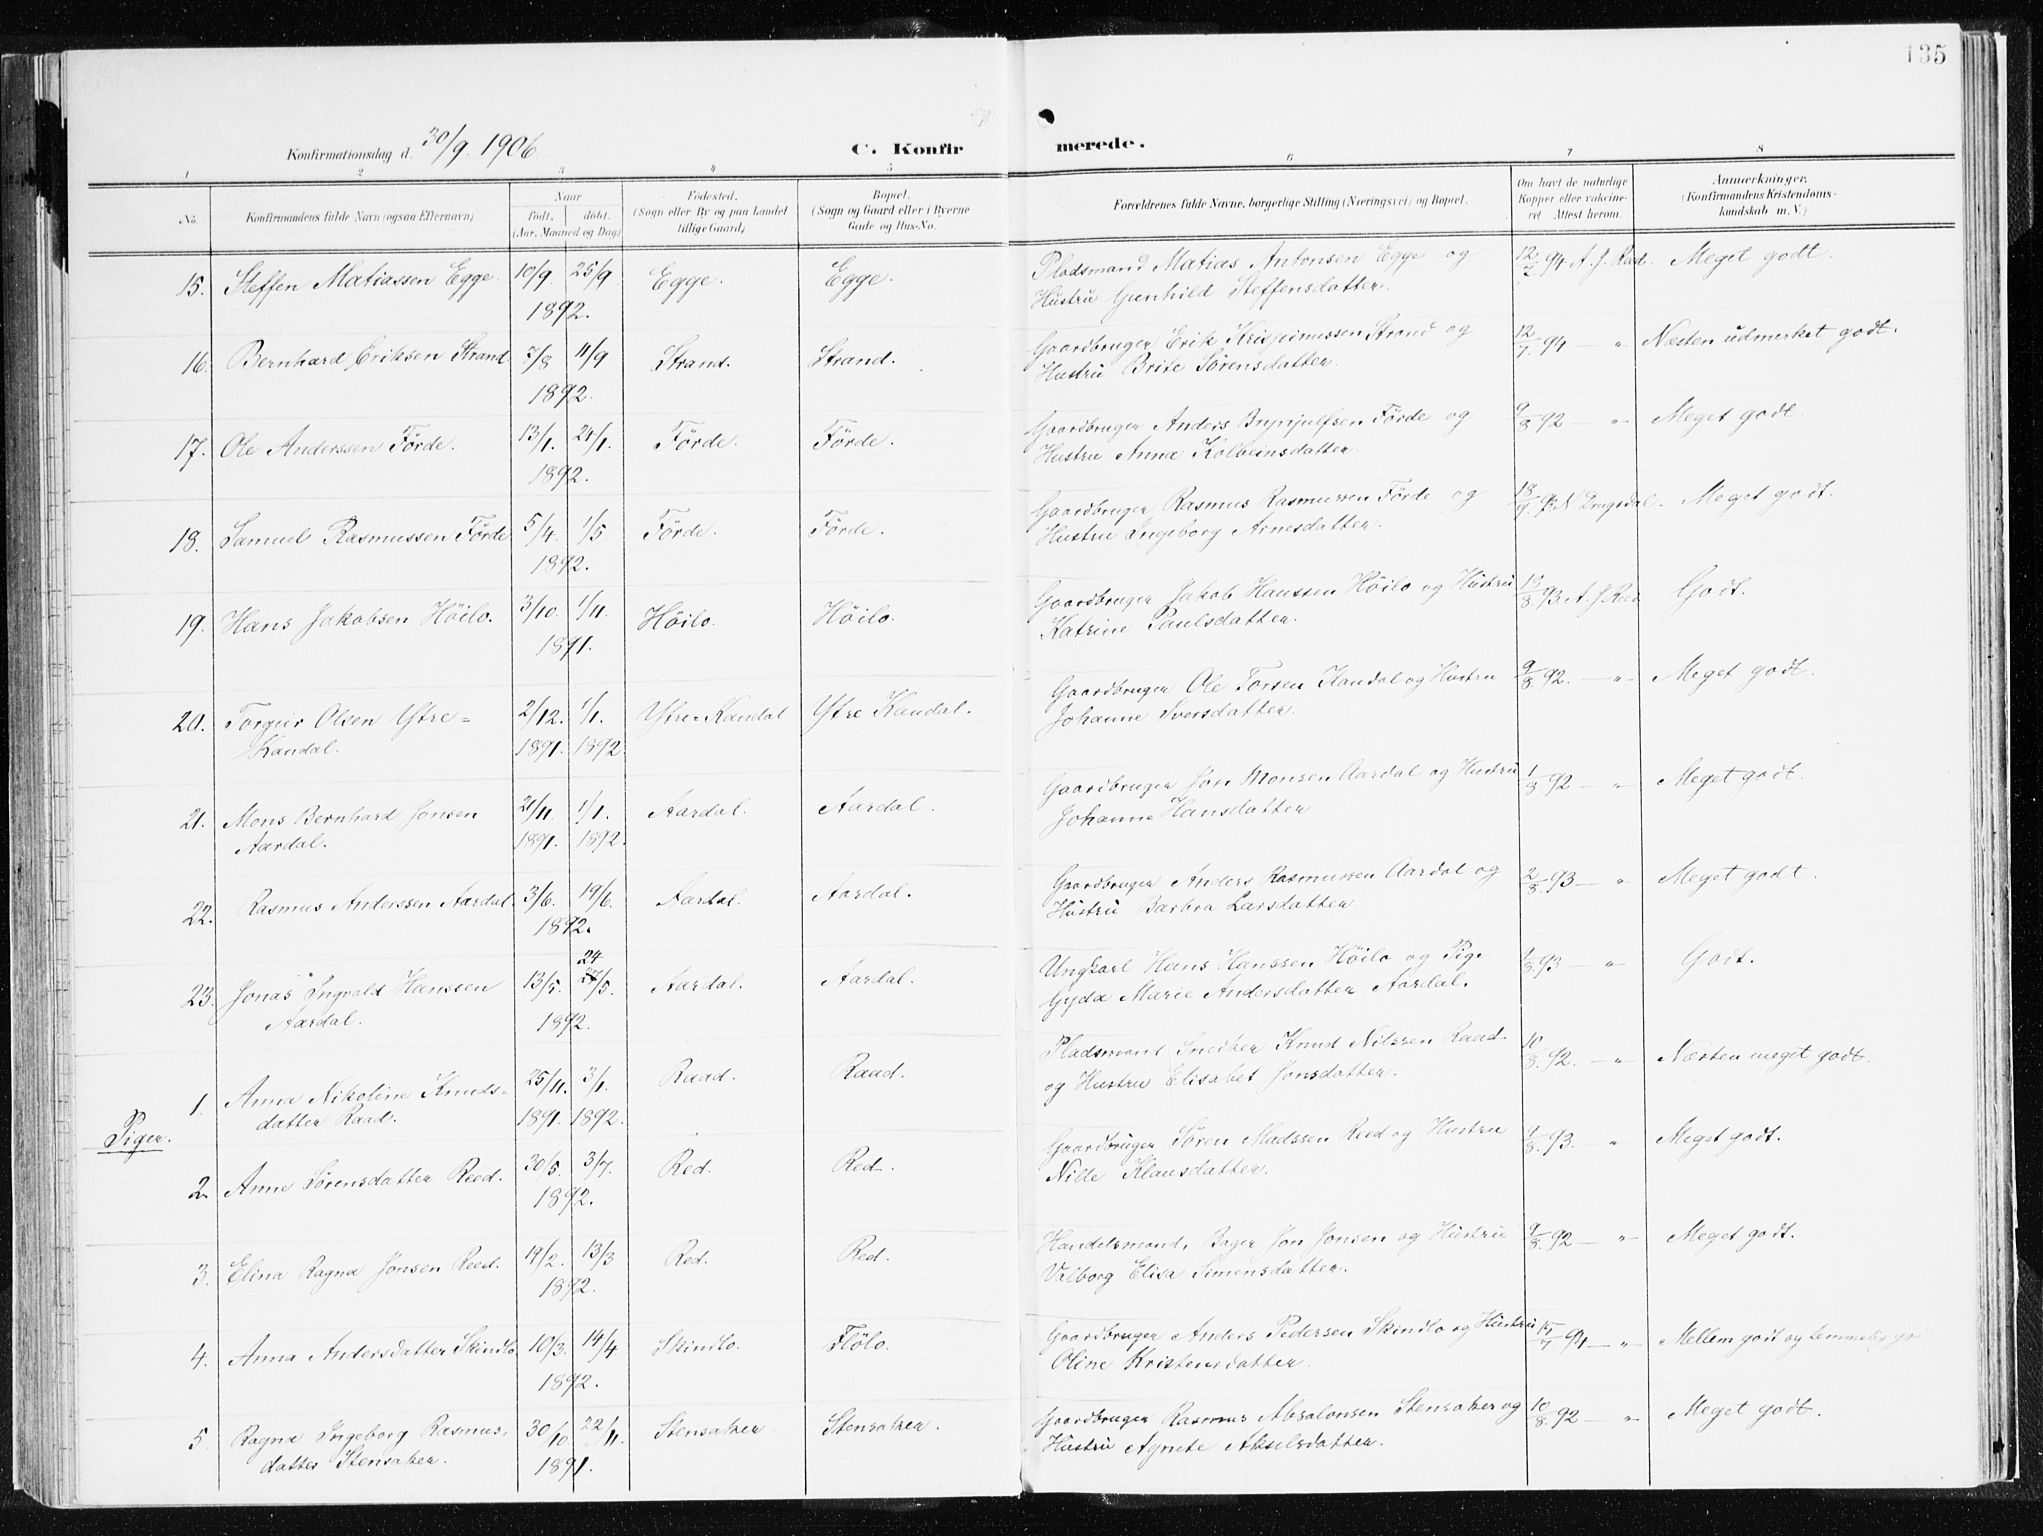 135
Konfirmationsdag d. 30/9 1906
C. Konfirmerede.
1 2 3 4 5 6 7 8
No. Konfirmandens fulde Navn (ogsaa Efternavn) Naar født. døbt. (Aar, Maaned og Dag) Fødested. (Sogn eller By og paa Landet tillige Gaard) Bopæl. (Sogn og Gaard eller i Byerne Gade og Hus-No. Forældrenes fulde Navne, borgerlige Stilling (Næringsvei) og Bopæl. Om havt de naturlige Kopper eller vakcineret Attest herom. Anmærkninger. (Konfirmandens Kristendomskundskab m. V.)
15. Steffen Matiassen Egge. 10/9 25/9 Egge. Egge. Pladsmand Matias Antonsen Egge og 12/7 94 A. J. Red. Meget godt.
1892. Hustru Gunhild Steffensdatter.
16. Bernhard Eriksen Strand 7/8 11/9 Strand. Strand. Gaardbruger Erik Krispinussen Strand og 12/7. 94 — " Næsten udmerket godt.
1892. Hustru Brite Sørensdatter.
17. Ole Anderssen Förde. 13/1. 24/1. Förde. Förde. Gaardbruger Anders Brynjulfsen Förde og 9/8 92 — " Meget godt.
1892. Hustru Anna Kolbeinsdatter.
18. Samuel Rasmussen Förde 5/4. 1/5. Förde. Förde. Gaardbruger Rasmus Rasmussen Förde og 18/9. N. Dragsdal. Meget godt.
1892. Hustru Ingeborg Arnesdatter.
19. Hans Jakobsen Höilo. 3/10. 1/11. Höilo. Höilo. Gaardbruger Jakob Hanssen Höilo og Hustru 18/8 93. A. J. Red. Godt.
1891. Katrine Paulsdatter.
20. Torgeir Olsen Ytre= 2/12. 1/1. Ytre=Kandal Ytre Kandal. Gaardbruger Ole Torsen Kandal og Hustru 9/8. 92. — " Meget godt.
Kandal. 1891. 1892. Johanne Iversdatter.
21. Mons Bernhard Jonsen 21/11. 1/1. Aardal. Aardal. Gaardbruger Jon Monsen Aardal og Hustru 1/8 92 — " Meget godt.
Aardal. 1891. 1892. Johanne Hansdatter.
22. Rasmus Anderssen Aardal. 3/6. 19/6. Aardal. Aardal. Gaardbruger Anders Rasmussen Aardal og 2/8 93 — " Meget godt.
1892. Hustru Barbra Larsdatter.
23. Jonas Ingvald Hanssen 13/5. 24/5. Aardal. Aardal. Ungkarl Hans Hanssen Höilo og Pige 9/8 93 — " Godt.
Aardal. 1892. Gyda Marie Andersdatter Aardal.
Piger.
1. Anna Nikoline Knuds- 25/11. 3/1. Raad. Raad. Pladsmand Snedker Knud Nilssen Raad 10/8. 92. — " Næsten meget godt.
datter Raad. 1891. 1892. og Hustru Elisabet Jonsdatter.
2. Anne Sørensdatter Reed. 20/5. 3/7. Red. Red. Gaardbruger Søren Madssen Reed og Hustru 9/8. 93. " Meget godt.
1892. Nille Klausdatter.
3. Elina Ragna Jonsen Reed. 19/2. 13/3 Red. Red. Handelsmand, Bager Jon Jonsen og Hustru 9/8. 92 — " Meget godt.
1892. Valborg Elisa Simensdatter.
4. Anna Andersdatter Skindlo 10/3. 14/4 Skindlo. Flölo. Gaardbruger Anders Pedersen Skindlo og Hustru 15/7 94 — " Mellem godt og temmelig godt
1892. Oline Kristensdatter.
5. Ragna Ingeborg Rasmus- 30/10 22/11. Stensaker Stensaker. Gaardbruger Rasmus Absalonsen Stensaker og 10/8. 92 — " Meget godt.
datter Stensaker. 1891. Hustru Agnete Akselsdatter.